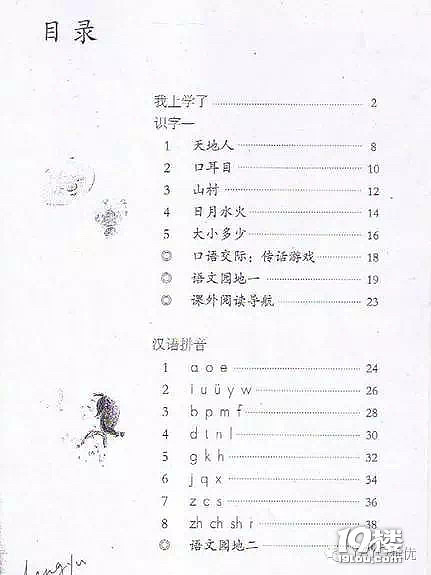 目录
我上学了 2
识字一
1 天地人 8
2 口耳目 10
3 山村 12
4 日月水火 14
5 大小多少 16
◎ 口语交际：传话游戏 18
◎ 语文园地一 19
◎ 课外阅读导航 23
汉语拼音
1 ɑ o e 24
2 i u ü y w 26
3 b p m f 28
4 d t n l 30
5 g k h 32
6 j q x 34
7 z c s 36
8 zh ch sh r 38
◎ 语文园地二
19楼
19lou.com